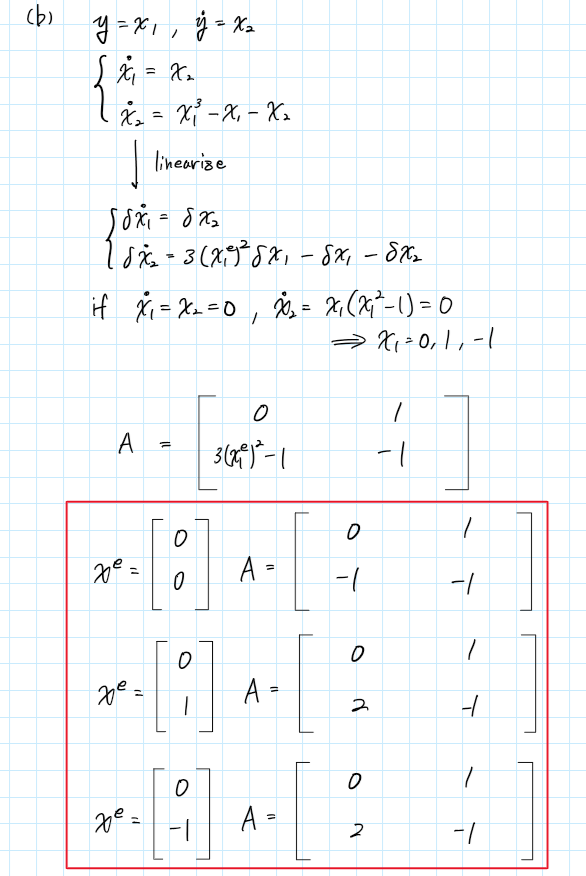 (b) y = x₁ , ẏ = x₂
{ ẋ₁ = x₂
ẋ₂ = x₁³ - x₁ - x₂
↓ linearise
{ δẋ₁ = δx₂
δẋ₂ = 3(x₁ᵉ)²δx₁ - δx₁ - δx₂
if ẋ₁ = x₂ = 0 , ẋ₂ = x₁(x₁² - 1) = 0
⟹ x₁ = 0, 1, -1
A = [ 0 1
3(x₁ᵉ)² - 1 -1 ]
xᵉ = [ 0 0 ] A = [ 0 1
-1 -1 ]
xᵉ = [ 0 1 ] A = [ 0 1
2 -1 ]
xᵉ = [ 0 -1 ] A = [ 0 1
2 -1 ]